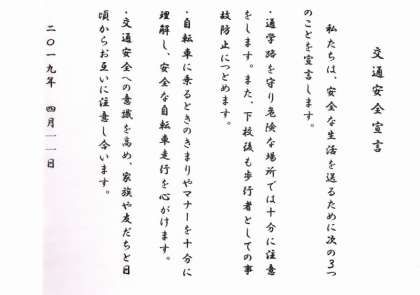 交通安全宣言
私たちは、安全な生活を送るために次の3つ
のことを宣言します。
・通学路を守り危険な場所では十分に注意
をします。また、下校後も歩行者としての事
故防止につとめます。
・自転車に乗るときのきまりやマナーを十分に
理解し、安全な自転車走行を心がけます。
・交通安全への意識を高め、家族や友だちと日
頃からお互いに注意し合います。
二〇一九年 四月一一日